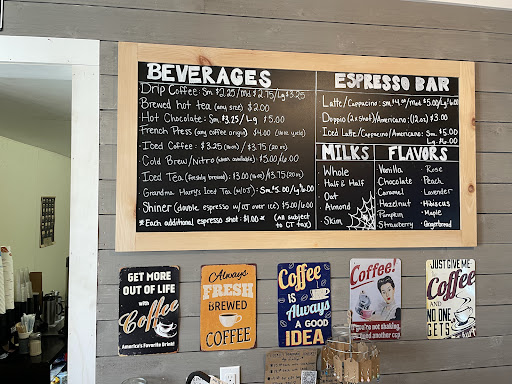 BEVERAGES
Drip Coffee: Sm. $2.25/Md. $2.75/Lg $3.25
Brewed hot tea (any size) $2.00
Hot Chocolate: Sm. $3.25/Lg $5.00
French Press (any coffee origin) $4.00
Iced Coffee: $3.25 / $3.75 (20 oz)
Cold Brew/Nitro (when available): $5.00/6.00
Iced Tea (freshly brewed): $3.00 /$3.75 (20 oz)
Grandma Mary's Iced Tea (w/OJ) Sm. $5.00/Lg $6.00
Shiner (double espresso w/OJ over ice) $5.00/6.00
*Each additional espresso shot: $1.00 * (All subject
to CT tax)
ESPRESSO BAR
Latte/Cappucino: Sm. $4.00/Md. $5.00/Lg $6.00
Doppio (2x shot)/Americano: (12 oz) $3.00
Iced Latte/Cappucino/Americano: Sm. $5.00
Lg. $6.00
MILKS
Whole
Half & Half
Oat
Almond
Skim
FLAVORS
Vanilla
Chocolate
Caramel
Hazelnut
Pumpkin
Strawberry
Rose
Peach
Lavender
Hibiscus
Maple
Gingerbread
GET MORE
OUT OF LIFE
with
Coffee
America's Favorite Drink!
Always
FRESH
BREWED
COFFEE
Coffee
IS
Always
A GOOD
IDEA
Coffee!
If you're not shaking,
another cup!
JUST GIVE ME
Coffee
AND
NO ONE
GETS